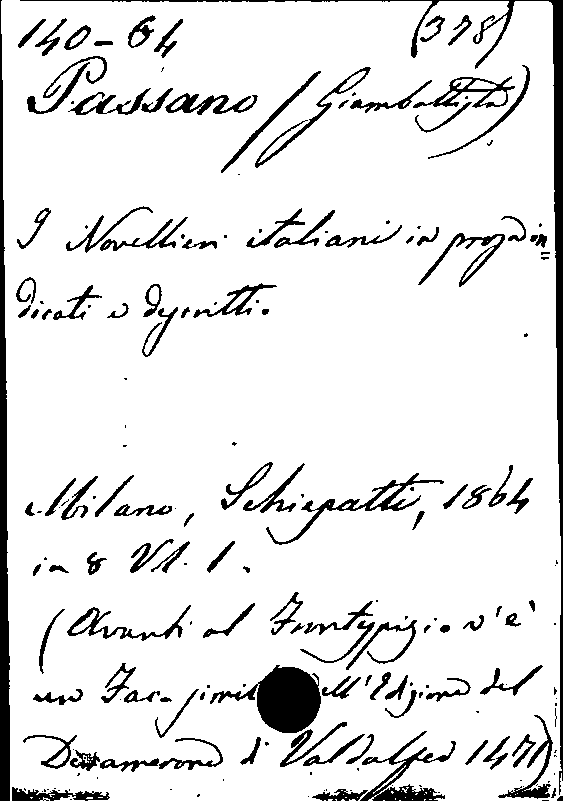 140-64 (378)
Passano (Giambattista)
I Novellieri italiani in prosa in=
dicati e descritti.
Milano, Schiepatti, 1864
in 8 Vl. 1.
(Avanti al Frontispizio v'è
un Fac-simil ell'Edizione del
Decamerone di Valdalfer 1471)